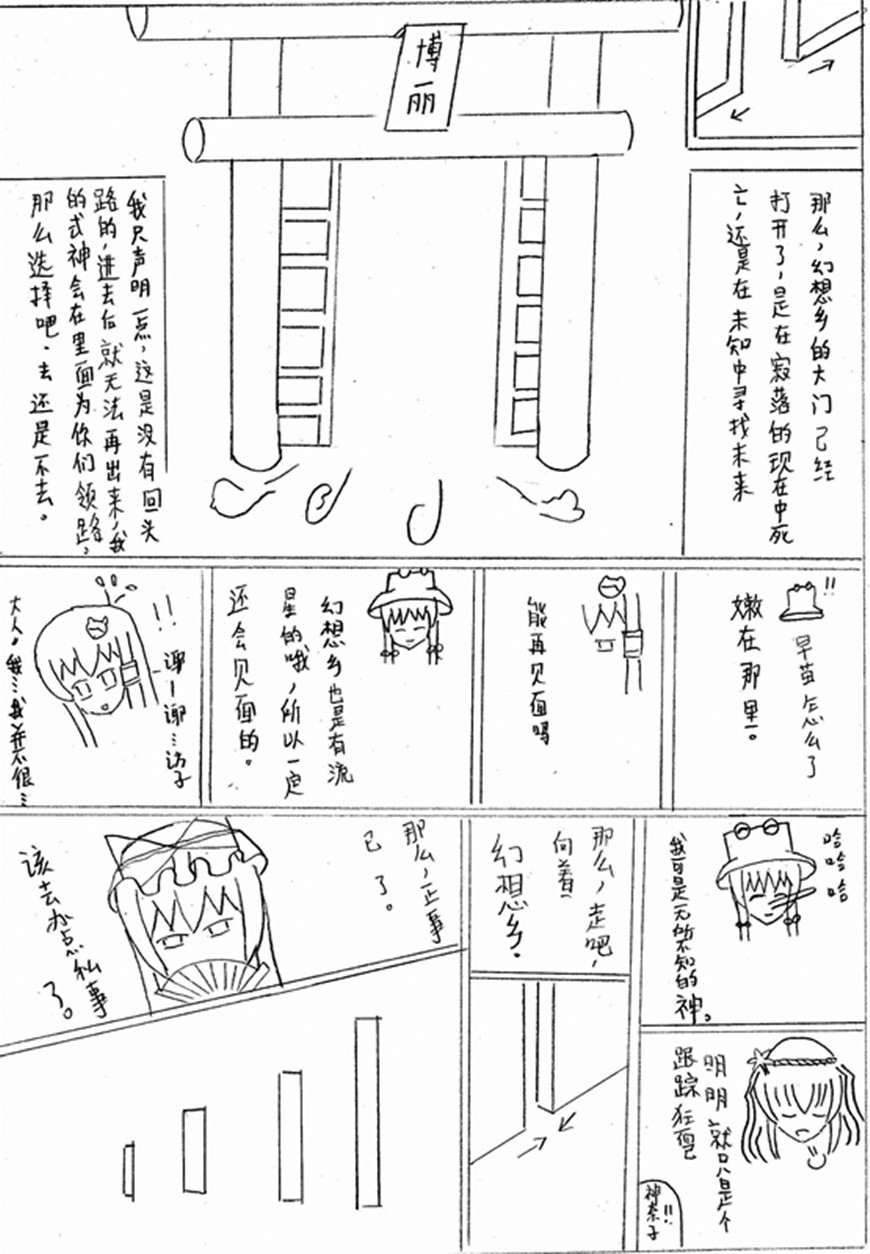 博丽
那么，幻想乡的大门已经
打开了，是在寂落的现在中死
亡，还是在未知中寻找未来
我只声明一点，这是没有回头
路的，进去后就无法再出来，我
的式神会在里面为你们领路，
那么选择吧．去还是不去。
!!
早苗怎么了
嫩在那里。
能再见面吗
幻想乡也是有流
星的哦，所以一定
还会见面的。
!!
谢－谢…访子
大人。我…我并不很…
哈哈哈
我可是无所不知的神。
明明就只是个
跟踪狂吧
!!
神奈子
那么，走吧，
向着
幻想乡．
那么，正事
已了。
该去办点私事
了。